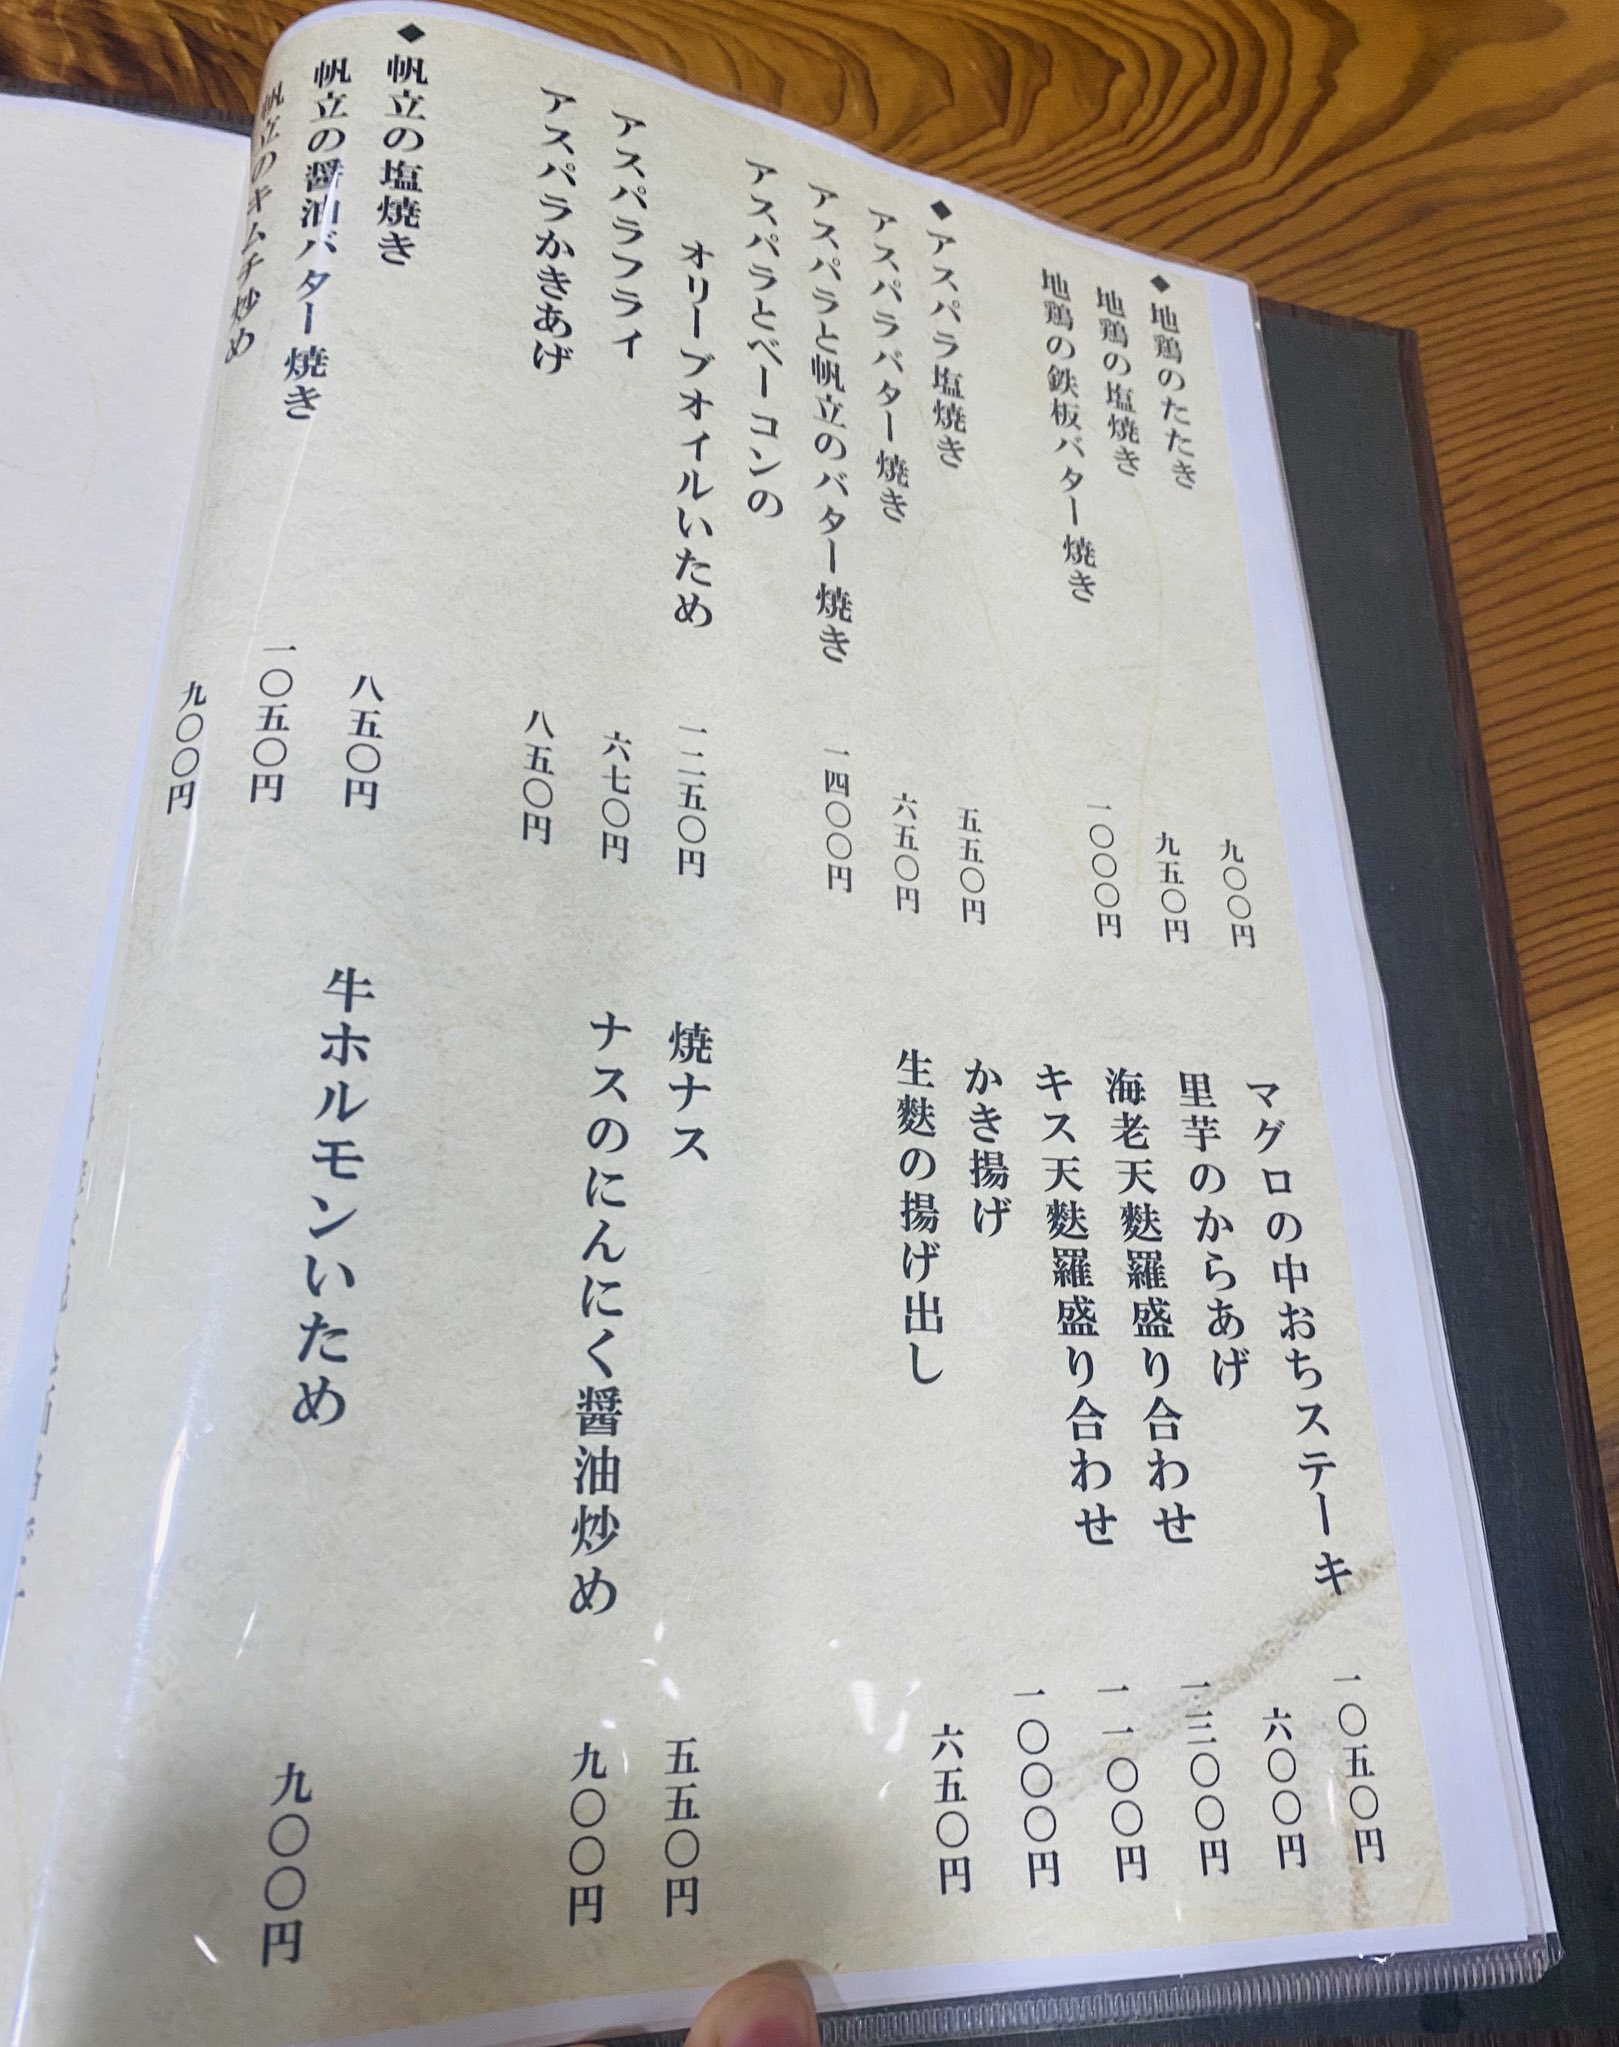 ◆地鶏のたたき 九〇〇円
地鶏の塩焼き 九五〇円
地鶏の鉄板バター焼き 一〇〇〇円
◆アスパラ塩焼き 五五〇円
アスパラバター焼き 六五〇円
アスパラと帆立のバター焼き 一四〇〇円
アスパラとベーコンの
オリーブオイルいため 一二五〇円
アスパラフライ 六七〇円
アスパラかきあげ 八五〇円
◆帆立の塩焼き 八五〇円
帆立の醤油バター焼き 一〇五〇円
帆立のキムチ炒め 九〇〇円
マグロの中おちステーキ 一〇五〇円
里芋のからあげ 六〇〇円
海老天麩羅盛り合わせ 一三〇〇円
キス天麩羅盛り合わせ 一一〇〇円
かき揚げ 一〇〇〇円
生麩の揚げ出し 六五〇円
焼ナス 五五〇円
ナスのにんにく醤油炒め 九〇〇円
牛ホルモンいため 九〇〇円